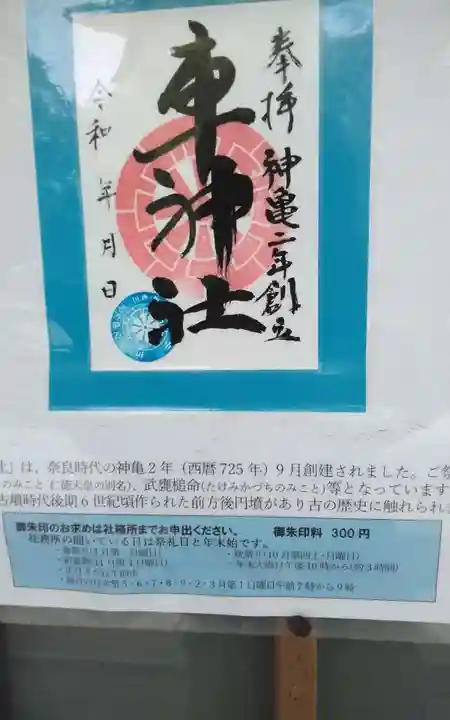 奉拝 神亀二年創立
車神社
令和 年 月 日
社」は、奈良時代の神亀2年（西暦725年）9月創建されました。ご祭
のみこと 仁徳天皇の別名)、武甕槌命(たけみかづちのみこと)等となっています
古墳時代後期6世紀頃作られた前方後円墳があり古の歴史に触れられま
御朱印のお求めは社務所までお申出ください。 御朱印料 300円
社務所の開いている日は祭礼日と年末始です。
5・6・7・8・9・2・3月第1日曜日午前7時から9時